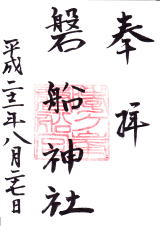 奉拝
磐船神社
平成二十三年八月二七日